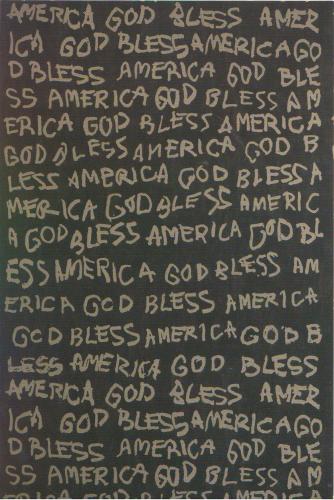 AMERICA GOD BLESS AMER
ICA GOD BLESS AMERICA GO
D BLESS AMERICA GOD BLE
SS AMERICA GOD BLESS AM
ERICA GOD BLESS AMERICA
GOD BLESS AMERICA GOD B
LESS AMERICA GOD BLESS A
MERICA GOD BLESS AMERIC
A GOD BLESS AMERICA GOD BL
ESS AMERICA GOD BLESS AM
ERICA GOD BLESS AMERICA
GOD BLESS AMERICA GOD B
LESS AMERICA GOD BLESS
AMERICA GOD BLESS AMER
ICA GOD BLESS AMERICA GO
D BLESS AMERICA GOD BLE
SS AMERICA GOD BLESS AM